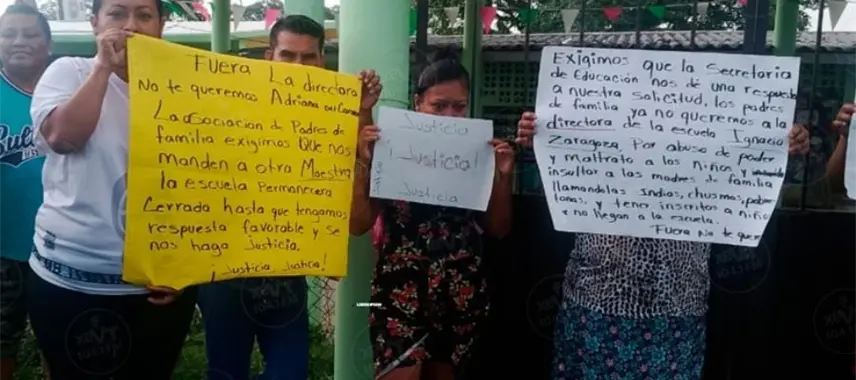 Fuera La directora
No te queremos Adriana
La asociacion de Padres de
familia exigimos Que nos
manden a otra Maestra
la escuela Permanecera
Cerrada hasta que tengamos
respuesta favorable y se
nos haga Justicia.
¡Justicia, Justicia!
Justicia
¡Justicia!
Justicia
Exigimos que la Secretaria
de Educación nos dé una respuesta
a nuestra solicitud, los padres
de familia ya no queremos a la
directora de la escuela Ignacio
Zaragoza, Por abuso de poder
y maltrato a los niños y
insultar a las madres de familia
llamandolas Indias, chusmas,
y tener inscritos a niños
no llegan a la escuela.
Fuera No te quer